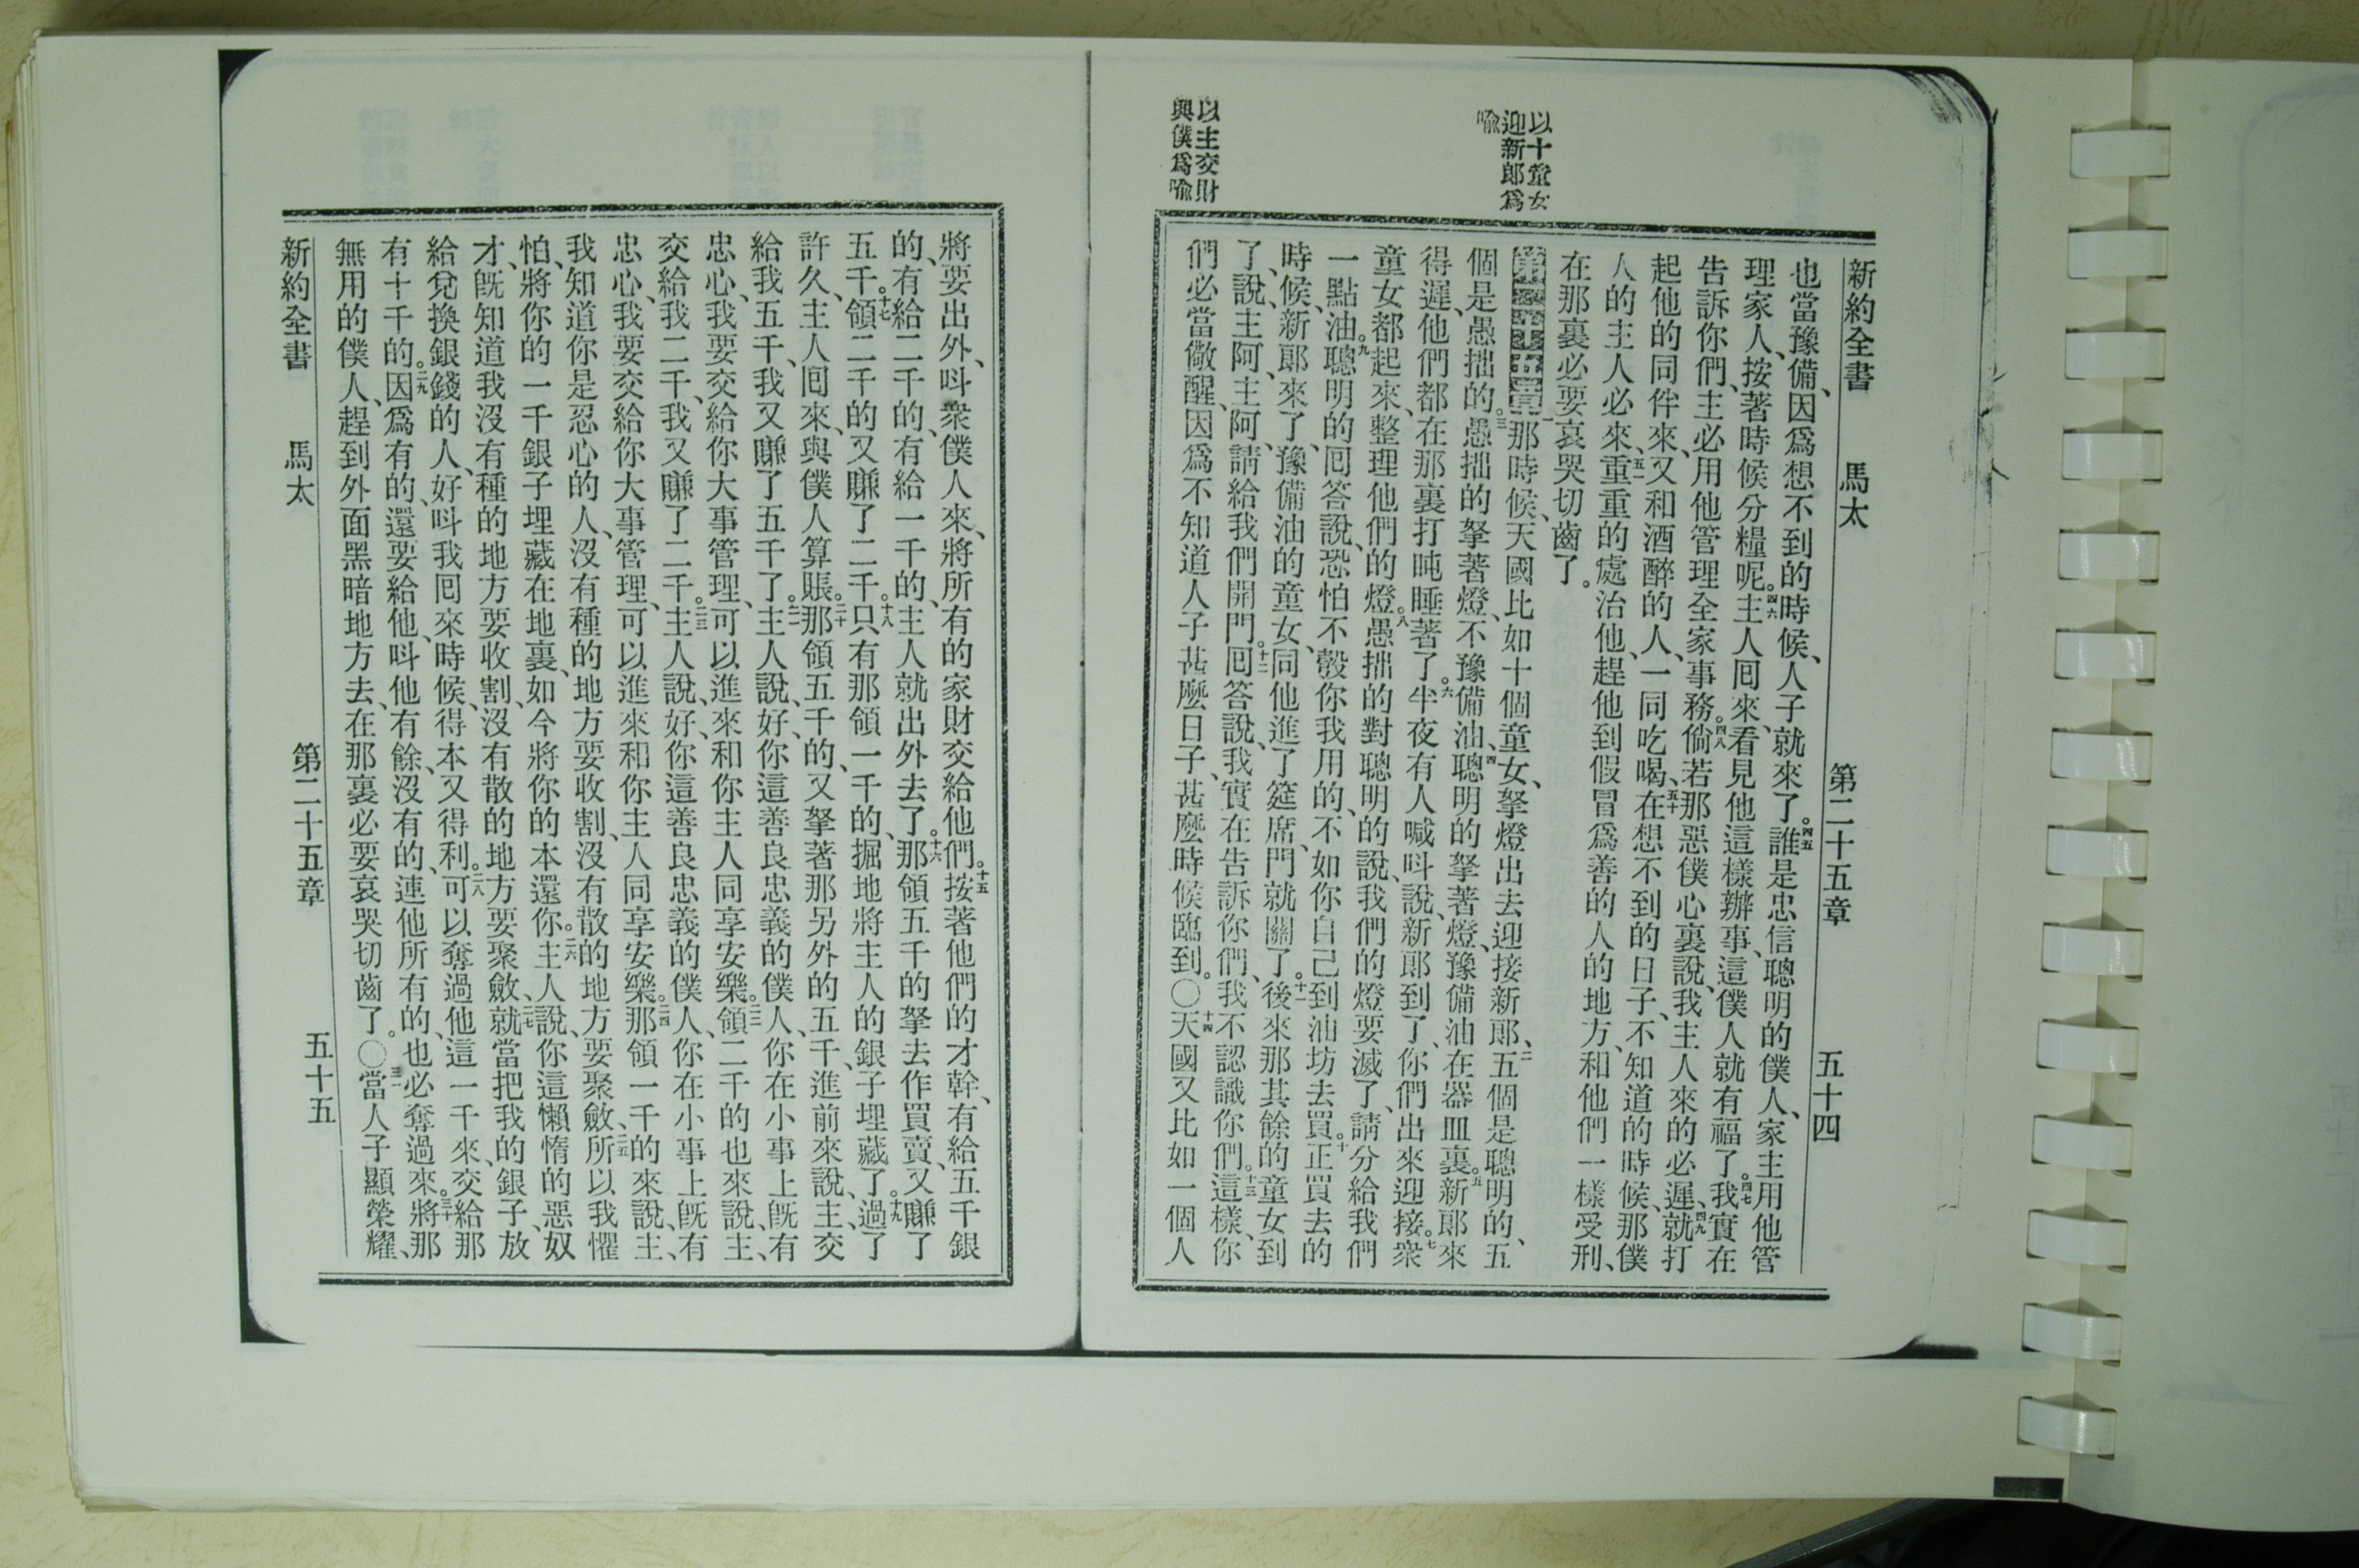 新約全書　馬太　第二十五章　五十四
以十童女
迎新郎爲
喻
以主交財
與僕爲喻
也當豫備、因爲想不到的時候、人子就來了。四五誰是忠信聰明的僕人、家主用他管
理家人、按著時候分糧呢。四六主人囘來、看見他這樣辦事、這僕人就有福了。四七我實在
告訴你們、主必用他管理全家事務。四八倘若那惡僕心裏說、我主人來的必遲、四九就打
起他的同伴來、又和酒醉的人、一同吃喝、五十在想不到的日子、不知道的時候、那僕
人的主人必來、五一重重的處治他、趕他到假冒爲善的人的地方、和他們一樣受刑、
在那裏必要哀哭切齒了。
第二十五章一那時候、天國比如十個童女、拏燈出去迎接新郎、二五個是聰明的、五
個是愚拙的。三愚拙的拏著燈、不豫備油、四聰明的拏著燈、豫備油在器皿裏。五新郎來
得遲、他們都在那裏打盹睡著了。六半夜有人喊呌說、新郎到了、你們出來迎接。七衆
童女都起來、整理他們的燈。八愚拙的對聰明的說、我們的燈要滅了、請分給我們
一點油。九聰明的囘答說、恐怕不彀你我用的、不如你自己到油坊去買。十正買去的
時候、新郎來了、豫備油的童女、同他進了筵席、門就關了。十一後來那其餘的童女到
了、說、主阿、主阿、請給我們開門。十二囘答說、我實在告訴你們、我不認識你們。十三這樣、你
們必當儆醒、因爲不知道人子甚麼日子、甚麼時候臨到。〇十四天國又比如一個人
將要出外、呌衆僕人來、將所有的家財交給他們。十五按著他們的才幹、有給五千銀
的、有給二千的、有給一千的、主人就出外去了。十六那領五千的拏去作買賣、又賺了
五千。十七領二千的又賺了二千。十八只有那領一千的、掘地將主人的銀子埋藏了。十九過了
許久、主人囘來、與僕人算賬。二十那領五千的、又拏著那另外的五千、進前來說、主、交
給我五千、我又賺了五千了。二一主人說、好、你這善良忠義的僕人、你在小事上旣有
忠心、我要交給你大事管理、可以進來和你主人同享安樂。二二領二千的也來說、主、
交給我二千、我又賺了二千。二三主人說、好、你這善良忠義的僕人、你在小事上旣有
忠心、我要交給你大事管理、可以進來和你主人同享安樂。二四那領一千的來說、主、
我知道你是忍心的人、沒有種的地方要收割、沒有散的地方要聚斂、二五所以我懼
怕、將你的一千銀子埋藏在地裏、如今將你的本還你。二六主人說、你這懶惰的惡奴
才、旣知道我沒有種的地方要收割、沒有散的地方要聚斂、二七就當把我的銀子、放
給兌換銀錢的人、好呌我囘來時候、得本又得利。二八可以奪過他這一千來、交給那
有十千的。二九因爲有的、還要給他、呌他有餘、沒有的、連他所有的、也必奪過來。三十將那
無用的僕人、趕到外面黑暗地方去、在那裏必要哀哭切齒了。〇三一當人子顯榮耀、
新約全書　馬太　第二十五章　五十五